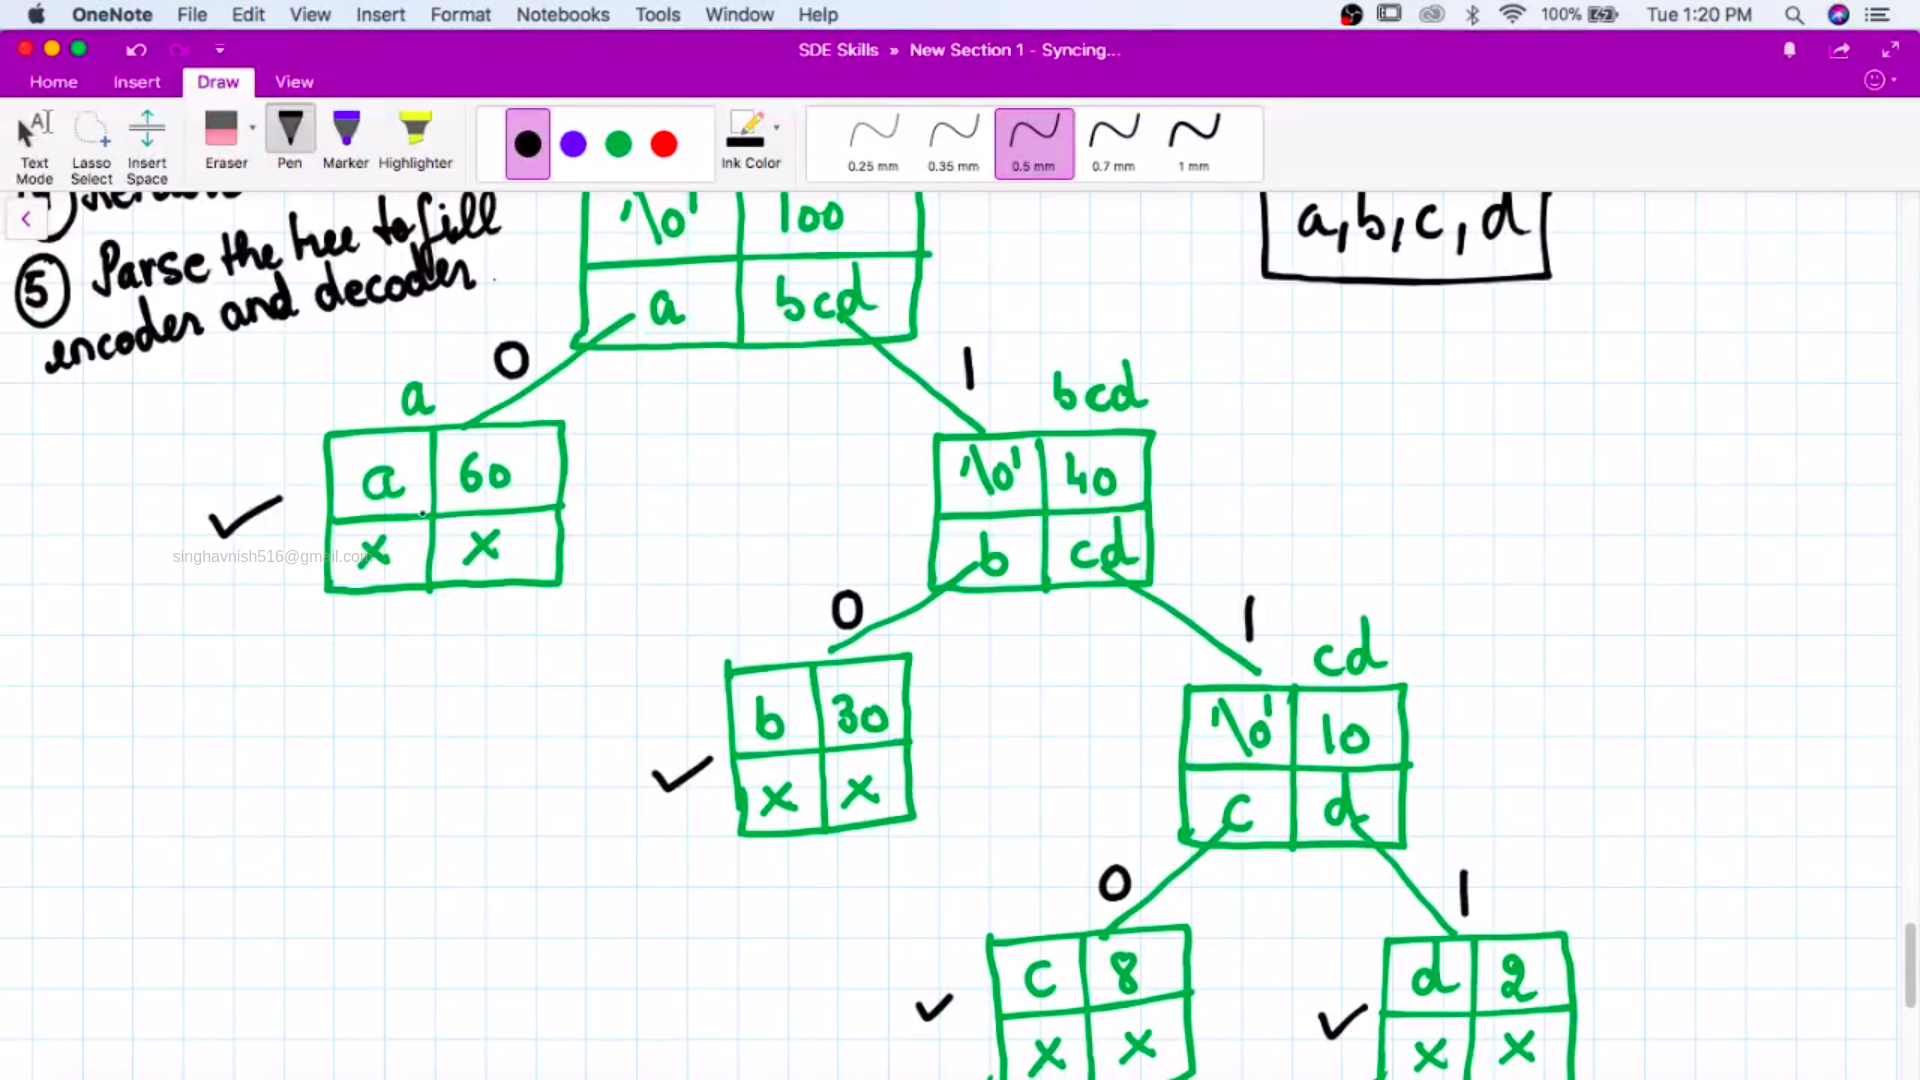 OneNote File Edit View Insert Format Notebooks Tools Window Help 100% Tue 1:20 PM
SDE Skills » New Section 1 - Syncing...
Home Insert Draw View
Text Mode Lasso Select Insert Space Eraser Pen Marker Highlighter Ink Color 0.25 mm 0.35 mm 0.5 mm 0.7 mm 1 mm
5 Parse the tree to fill
encoder and decoder
'\0' 100
a bcd
a,b,c,d
0 1
a bcd
a 60
x x
'\0' 40
b cd
singhavnish516@gmail.com
0 1
cd
b 30
x x
'\0' 10
c d
0 1
c 8
x x
d 2
x x